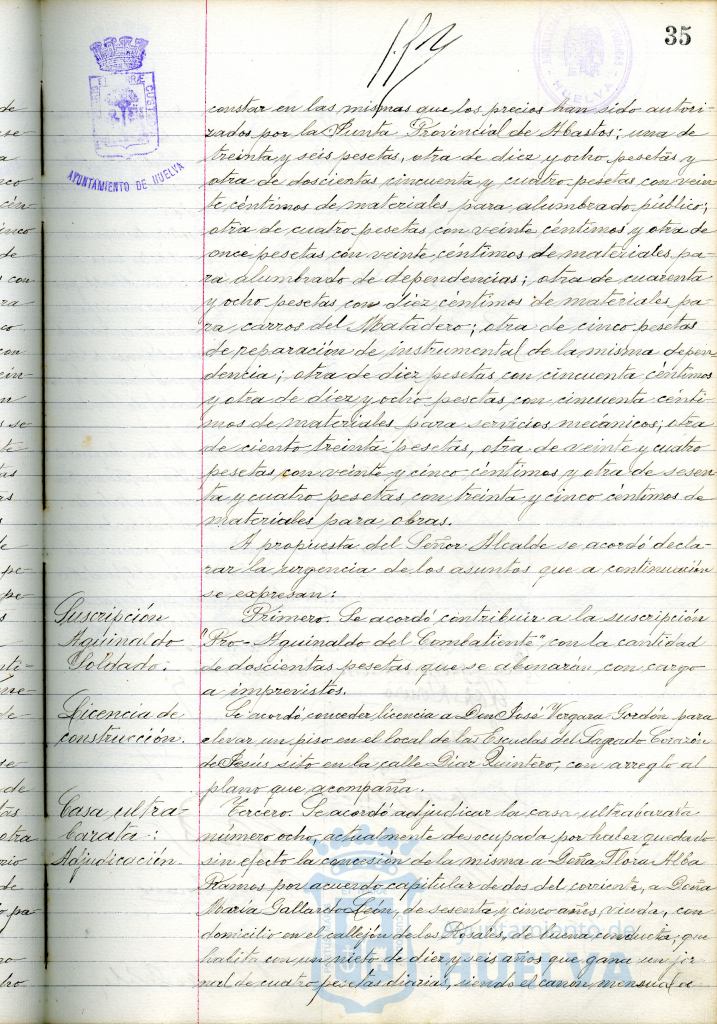 35
AYUNTAMIENTO DE HUELVA
HUELVA
constar en las mismas que los precios han sido autori-
zados por la Junta Provincial de Abastos; una de
treinta y seis pesetas, otra de diez y ocho pesetas y
otra de doscientas cincuenta y cuatro pesetas con vein-
te céntimos de materiales para alumbrado público;
otra de cuatro pesetas con veinte céntimos y otra de
once pesetas con veinte céntimos de materiales pa-
ra alumbrado de dependencias; otra de cuarenta
y ocho pesetas con diez céntimos de materiales pa-
ra carros del Matadero; otra de cinco pesetas
de reparación de instrumental de la misma depen-
dencia; otra de diez pesetas con cincuenta céntimos
y otra de diez y ocho pesetas con cincuenta cénti-
mos de materiales para servicios mecánicos; otra
de ciento treinta pesetas, otra de veinte y cuatro
pesetas con veinte y cinco céntimos y otra de sesen-
ta y cuatro pesetas con treinta y cinco céntimos de
materiales para obras.
A propuesta del Señor Alcalde se acordó decla-
rar la urgencia de los asuntos que a continuación
se expresan:
Suscripción
Aguinaldo
Soldado.
Primero. Se acordó contribuir a la suscripción
"Pro-Aguinaldo del Combatiente", con la cantidad
de doscientas pesetas, que se abonarán con cargo
a imprevistos.
Licencia de
construcción.
Se acordó conceder licencia a Don José Vergara Gordón para
elevar un piso en el local de las Escuelas del Sagrado Corazón
de Jesús sito en la calle Díaz Quintero, con arreglo al
plano que acompaña.
Casa ultra-
barata:
Adjudicación
Tercero. Se acordó adjudicar la casa ultrabarata
número ocho, actualmente desocupada por haber quedado
sin efecto la concesión de la misma a Doña Flora Alba
Ramos por acuerdo capitular de dos del corriente, a Doña
María Gallardo León, de sesenta y cinco años, viuda, con
domicilio en el callejón de los Rosales, de buena conducta, que
habita con un nieto de diez y seis años que gana un jor-
nal de cuatro pesetas diarias, siendo el canon mensual de
Ayuntamiento de
HUELVA